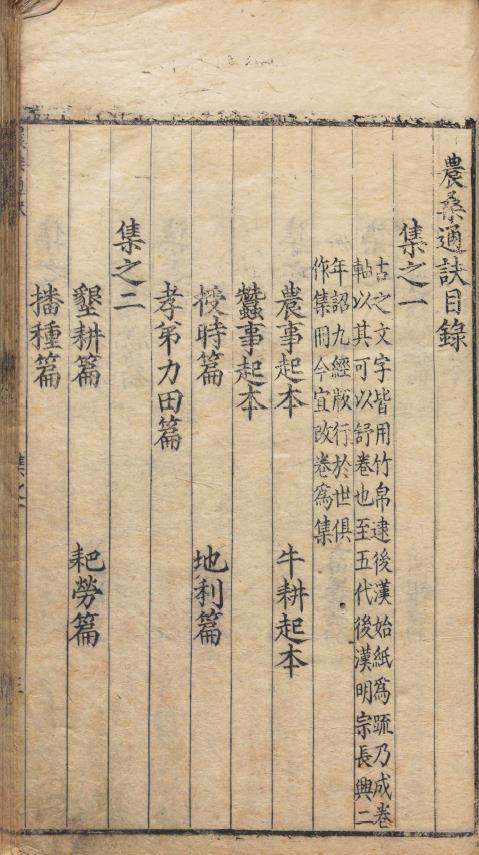 農桑通訣目錄
集之一
古之文字皆用竹帛逮後漢始紙爲疏乃成卷
軸以其可以舒卷也至五代後漢明宗長興二
年詔九經版行於世俱
作集冊今宜改卷爲集
農事起本 牛耕起本
蠶事起本
授時篇 地利篇
孝弟力田篇
集之二
墾耕篇 耙勞篇
播種篇